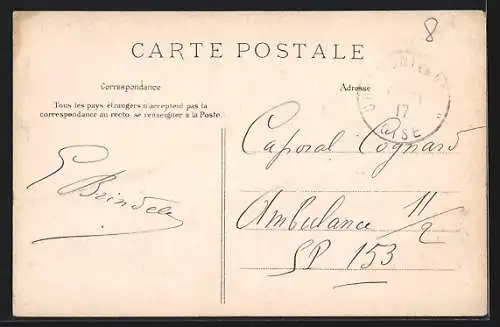 8
CARTE POSTALE
Correspondance
Adresse
Tous les pays étrangers n'acceptent pas la
correspondance au recto, se renseigner à la Poste.
17
OISE
Caporal Cognard
Ambulance 11/2
SP 153